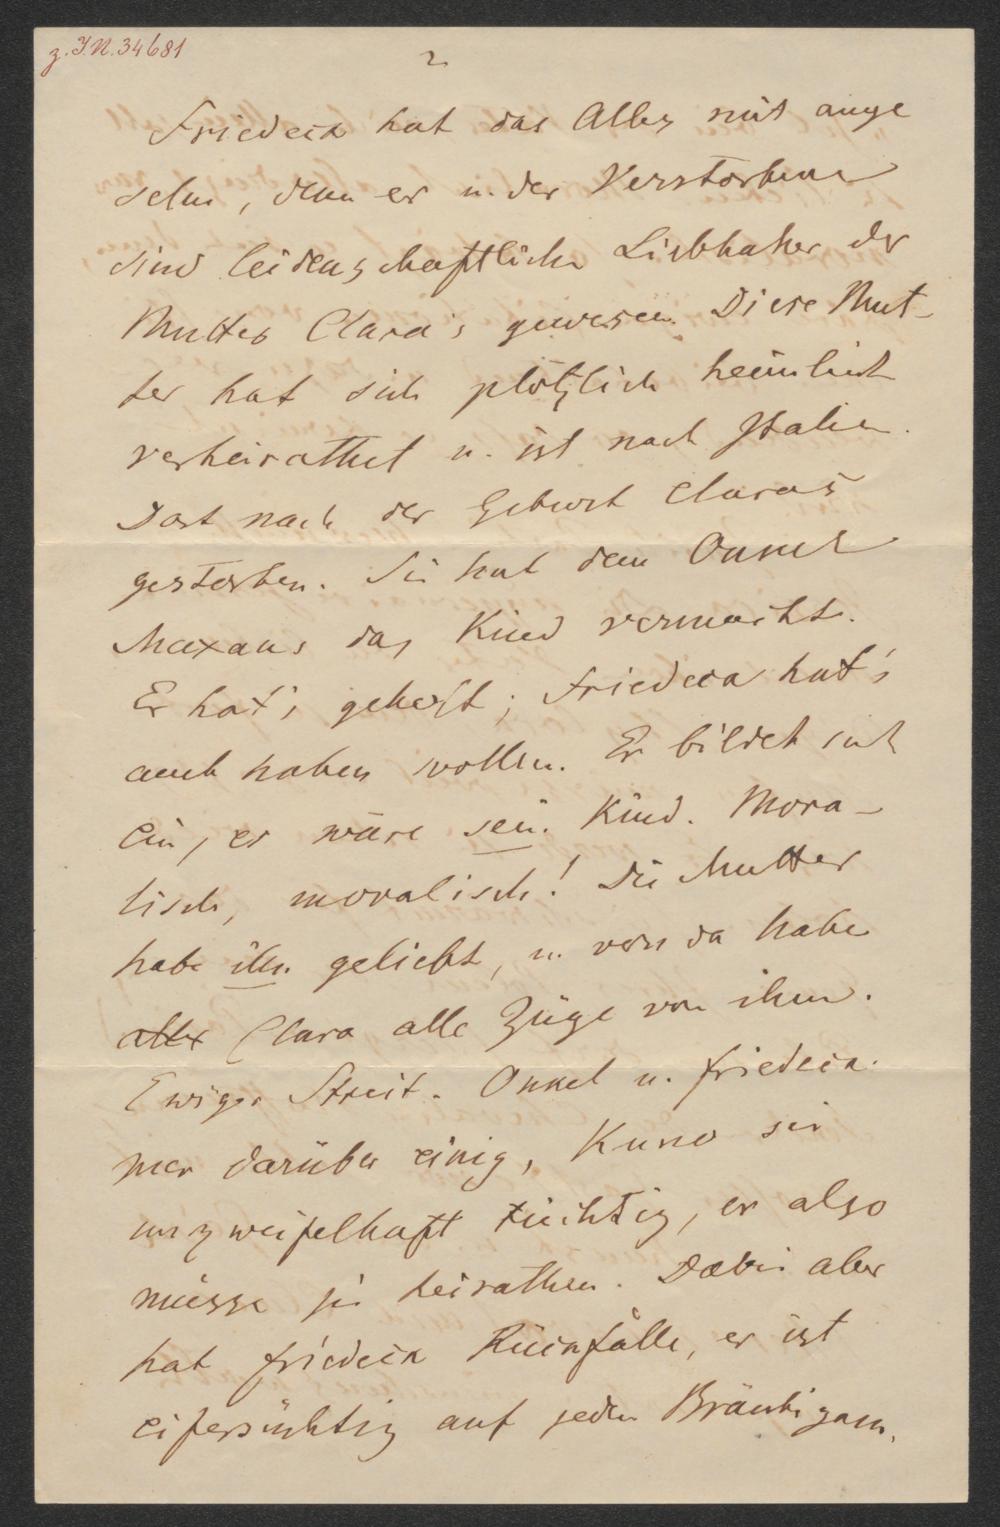 z. I.N. 34681
2
Friedeck hat das Alles mit ange
sehn, denn er u. der Verstorbene
sind leidenschaftliche Liebhaber der
Mutter Clara's gewesen. Diese Mut-
ter hat sich plötzlich heimlich
verheirathet u. ist nach Italien.
Dort nach der Geburt Claras
gestorben. Sie hat dem Onkel
das Kind vermacht.
Er hat's geherzt; Friedeck hat's
auch haben wollen. Er bildet sich
ein, es wäre sein Kind. Mora-
lisch, moralisch! Die Mutter
habe ihn geliebt, u. von da habe
Clara alle Züge von ihm.
Ewiger Streit. Onkel u. Friedeck
nur darüber einig, Kuno sei
unzweifelhaft tüchtig, er also
müsse sie heirathen. Dabei aber
hat Friedeck Rückfälle, er ist
eifersüchtig auf jeden Bräutigam.